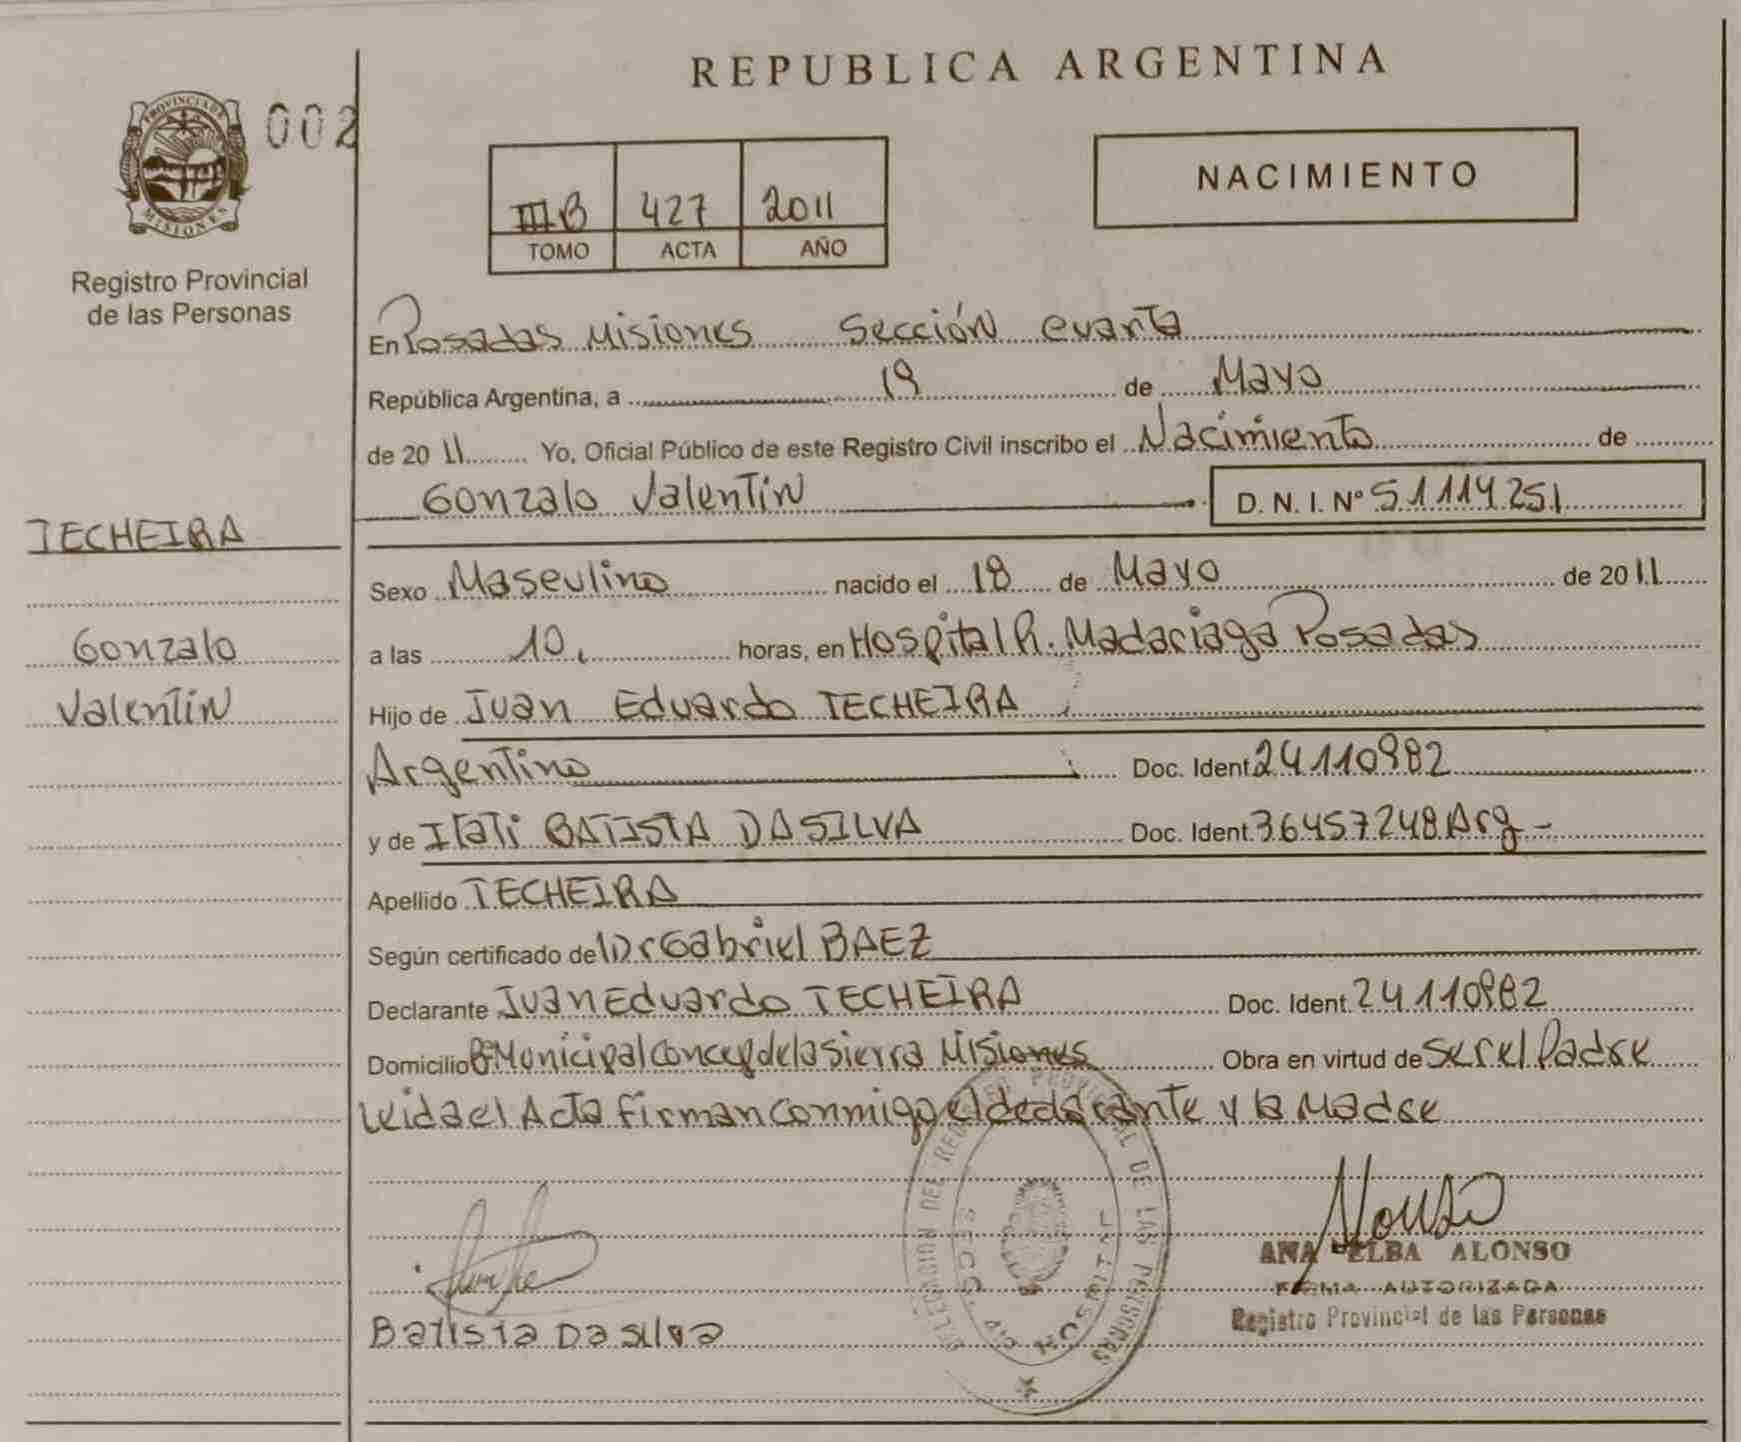 REPUBLICA ARGENTINA
PROVINCIA DE
MISIONES
002
Registro Provincial
de las Personas
III B 427 2011
TOMO ACTA AÑO
NACIMIENTO
En Posadas Misiones Sección cuarta
República Argentina, a 19 de Mayo
de 2011 Yo, Oficial Público de este Registro Civil inscribo el Nacimiento de
Gonzalo Valentin D. N. I. Nº 51114251
TECHEIRA
Gonzalo
Valentin
Sexo Masculino nacido el 18 de Mayo de 2011
a las 10. horas, en Hospital R. Madariaga Posadas
Hijo de Juan Eduardo TECHEIRA
Argentino Doc. Ident. 24110982
y de Itati BATISTA DA SILVA Doc. Ident. 36457248 Arg -
Apellido TECHEIRA
Según certificado del Dr Gabriel BAEZ
Declarante Juan Eduardo TECHEIRA Doc. Ident. 24110982
Domicilio Bº Municipal Concep de la Sierra Misiones Obra en virtud de ser el Padre
leida el Acta firman conmigo el declarante y la Madre
DELEGACION DEL REGISTRO PROVINCIAL DE LAS PERSONAS
SECC. HOSPITAL
Alonso
ANA ELBA ALONSO
FIRMA AUTORIZADA
Registro Provincial de las Personas
Batista Da silva